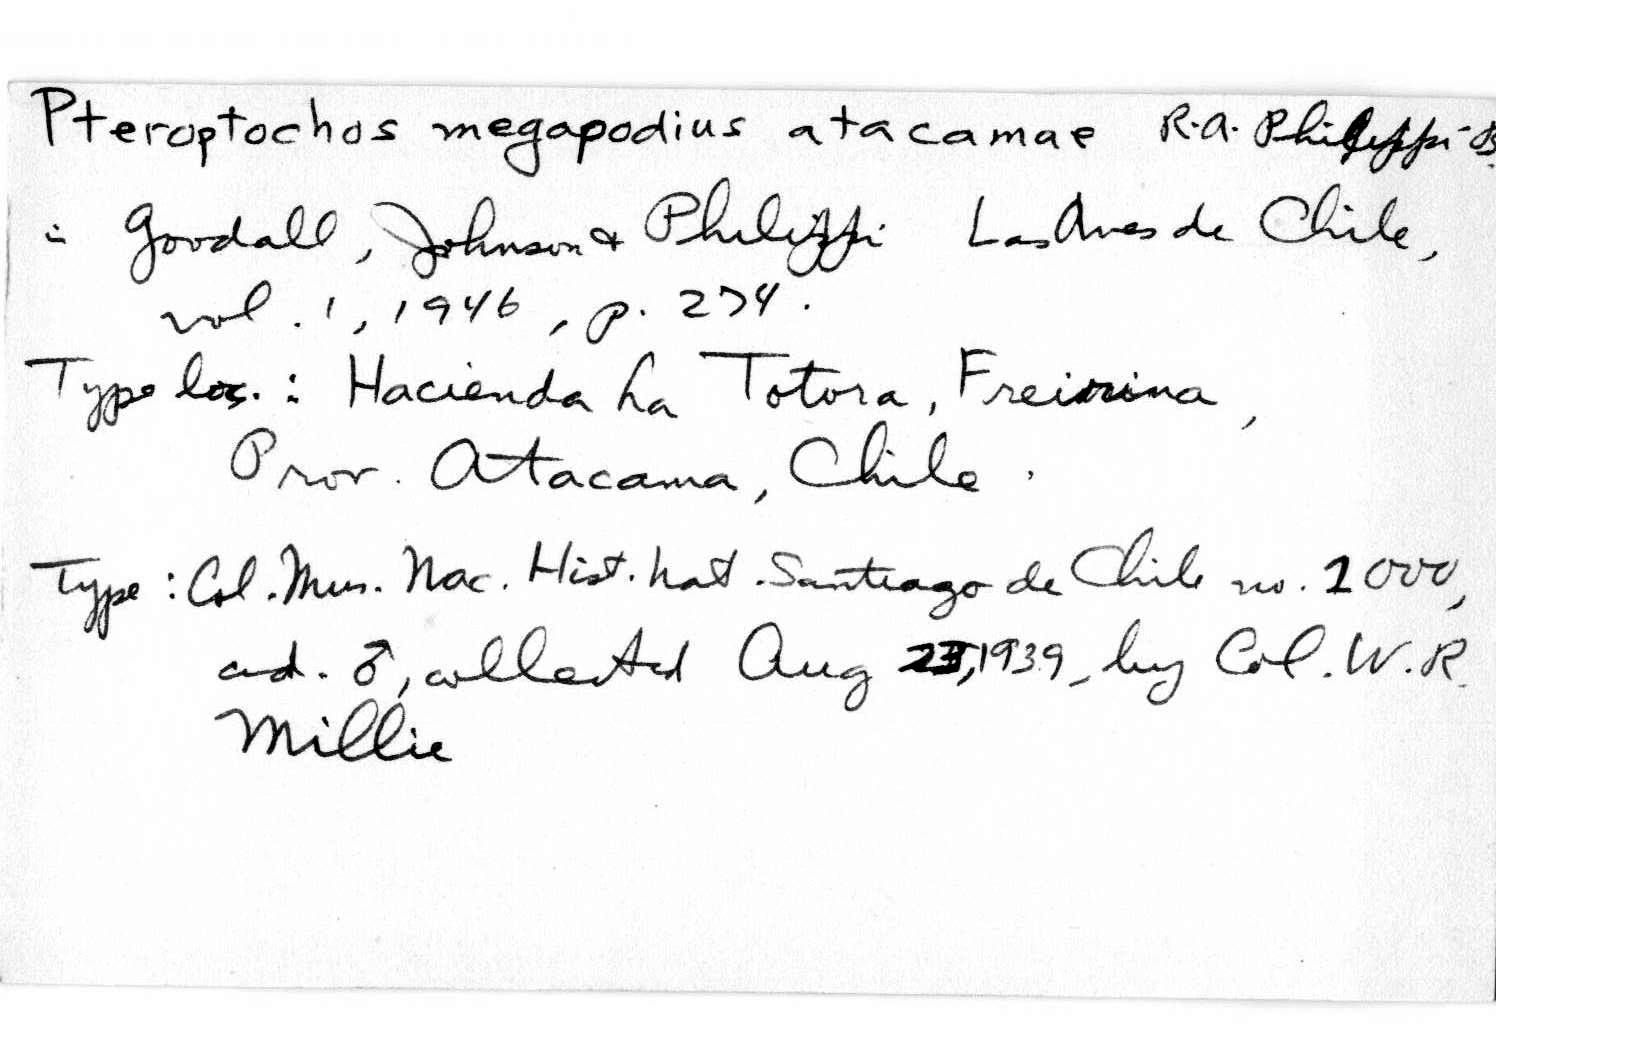 Pteroptochos megapodius atacamae R.A. Philippi-B.
in Goodall, Johnson & Philippi Las Aves de Chile,
vol. 1, 1946, p. 274.
Type loc.: Hacienda La Totora, Freirina,
Prov. Atacama, Chile.
Type: Col. Mus. Nac. Hist. Nat. Santiago de Chile no. 1000,
ad. ♂, collected Aug 1939, by Col. W. R.
Millie